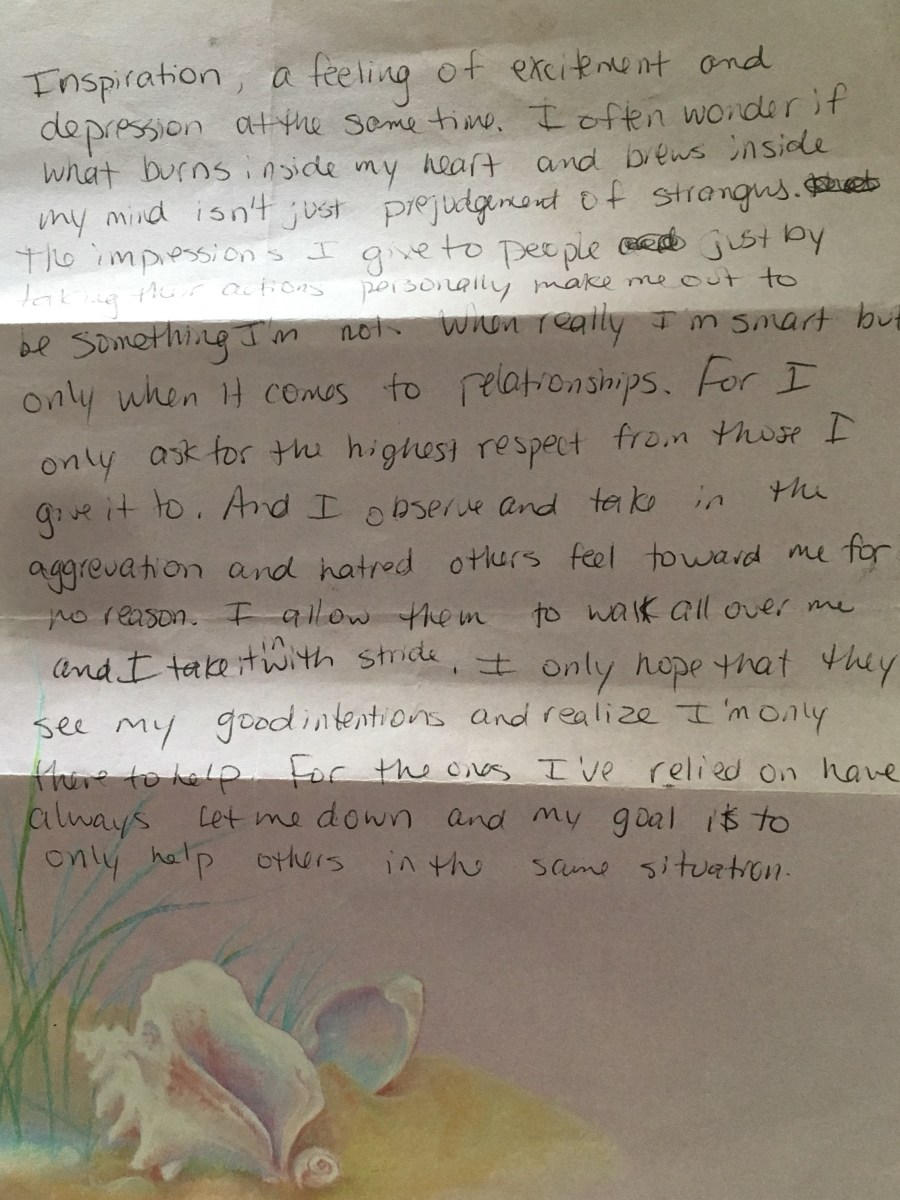 Inspiration, a feeling of excitement and
depression at the same time. I often wonder if
what burns inside my heart and brews inside
my mind isn't just prejudgement of strangers.
The impressions I give to people just by
taking their actions personally make me out to
be something I'm not. When really I'm smart but
only when it comes to relationships. For I
only ask for the highest respect from those I
give it to. And I observe and take in the
aggrevation and hatred others feel toward me for
no reason. I allow them to walk all over me
and I take it in with stride. I only hope that they
see my good intentions and realize I'm only
there to help. For the ones I've relied on have
always let me down and my goal is to
only help others in the same situation.